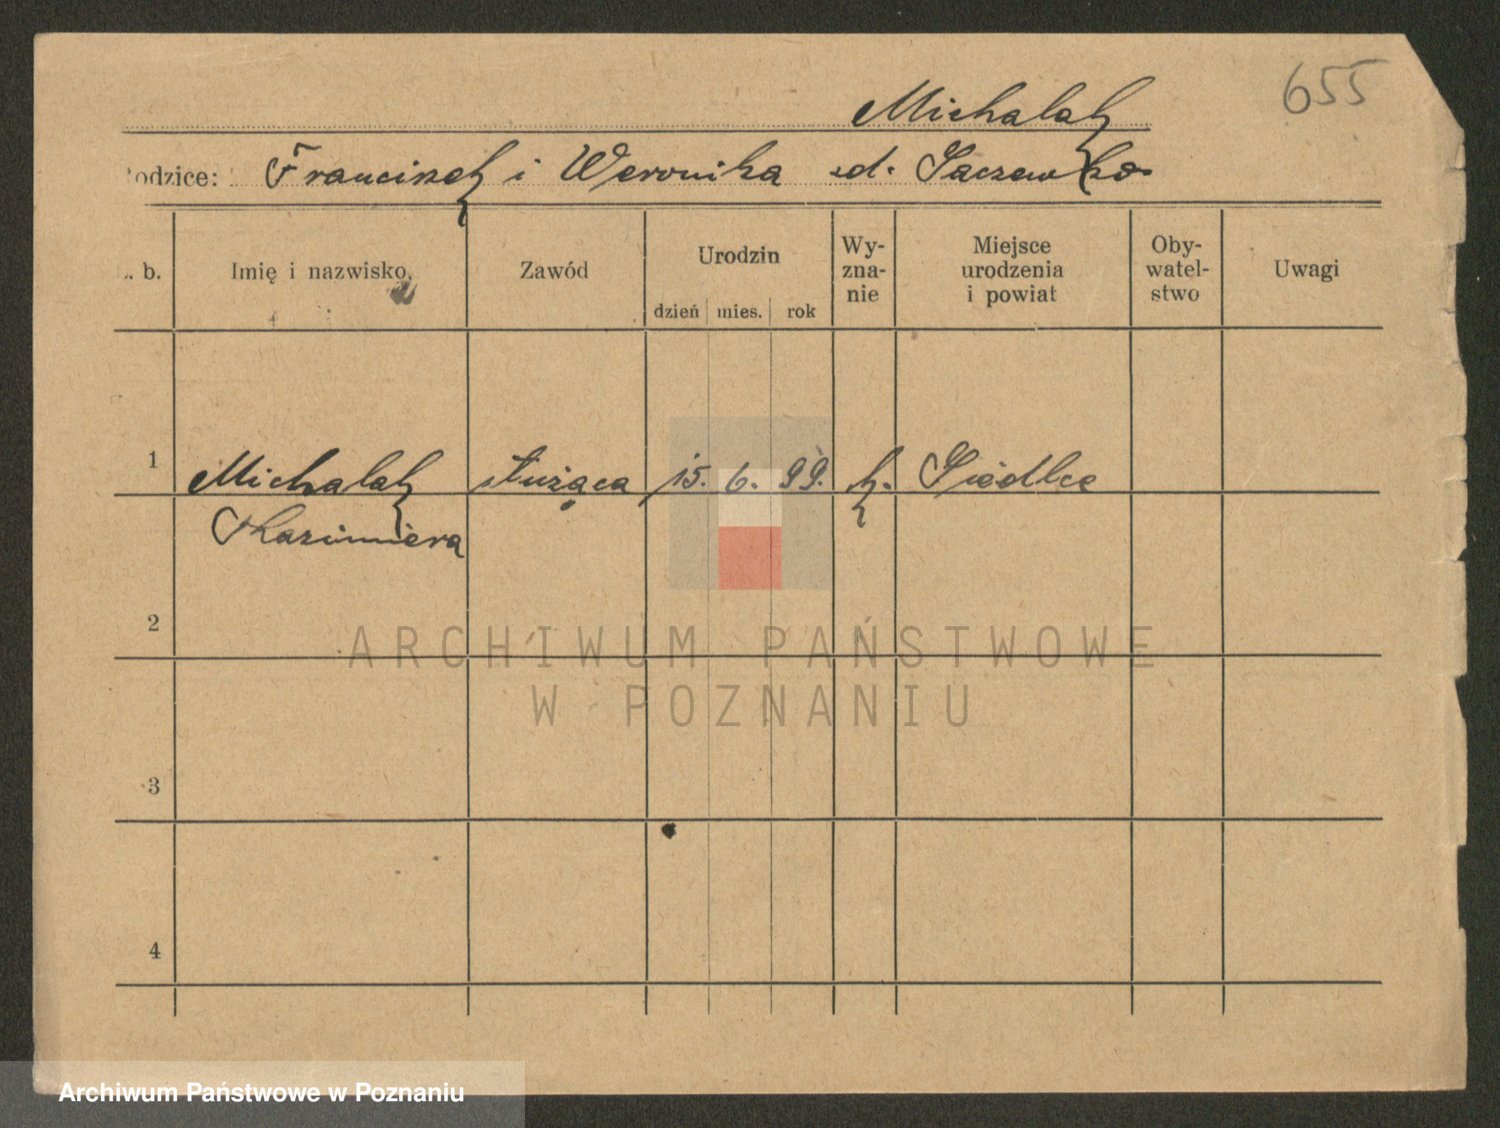 655
Michalak
odzice: Franciszek i Weronika
. b. Imię i nazwisko Zawód Urodzin dzień mies. rok Wy-zna-nie Miejsce urodzenia i powiat Oby-watel-stwo Uwagi
1 Michalak służąca 15. 6. 99. k. Siedlce
Kazimiera
2
3
4
ARCHIWUM PAŃSTWOWE
W POZNANIU
Archiwum Państwowe w Poznaniu